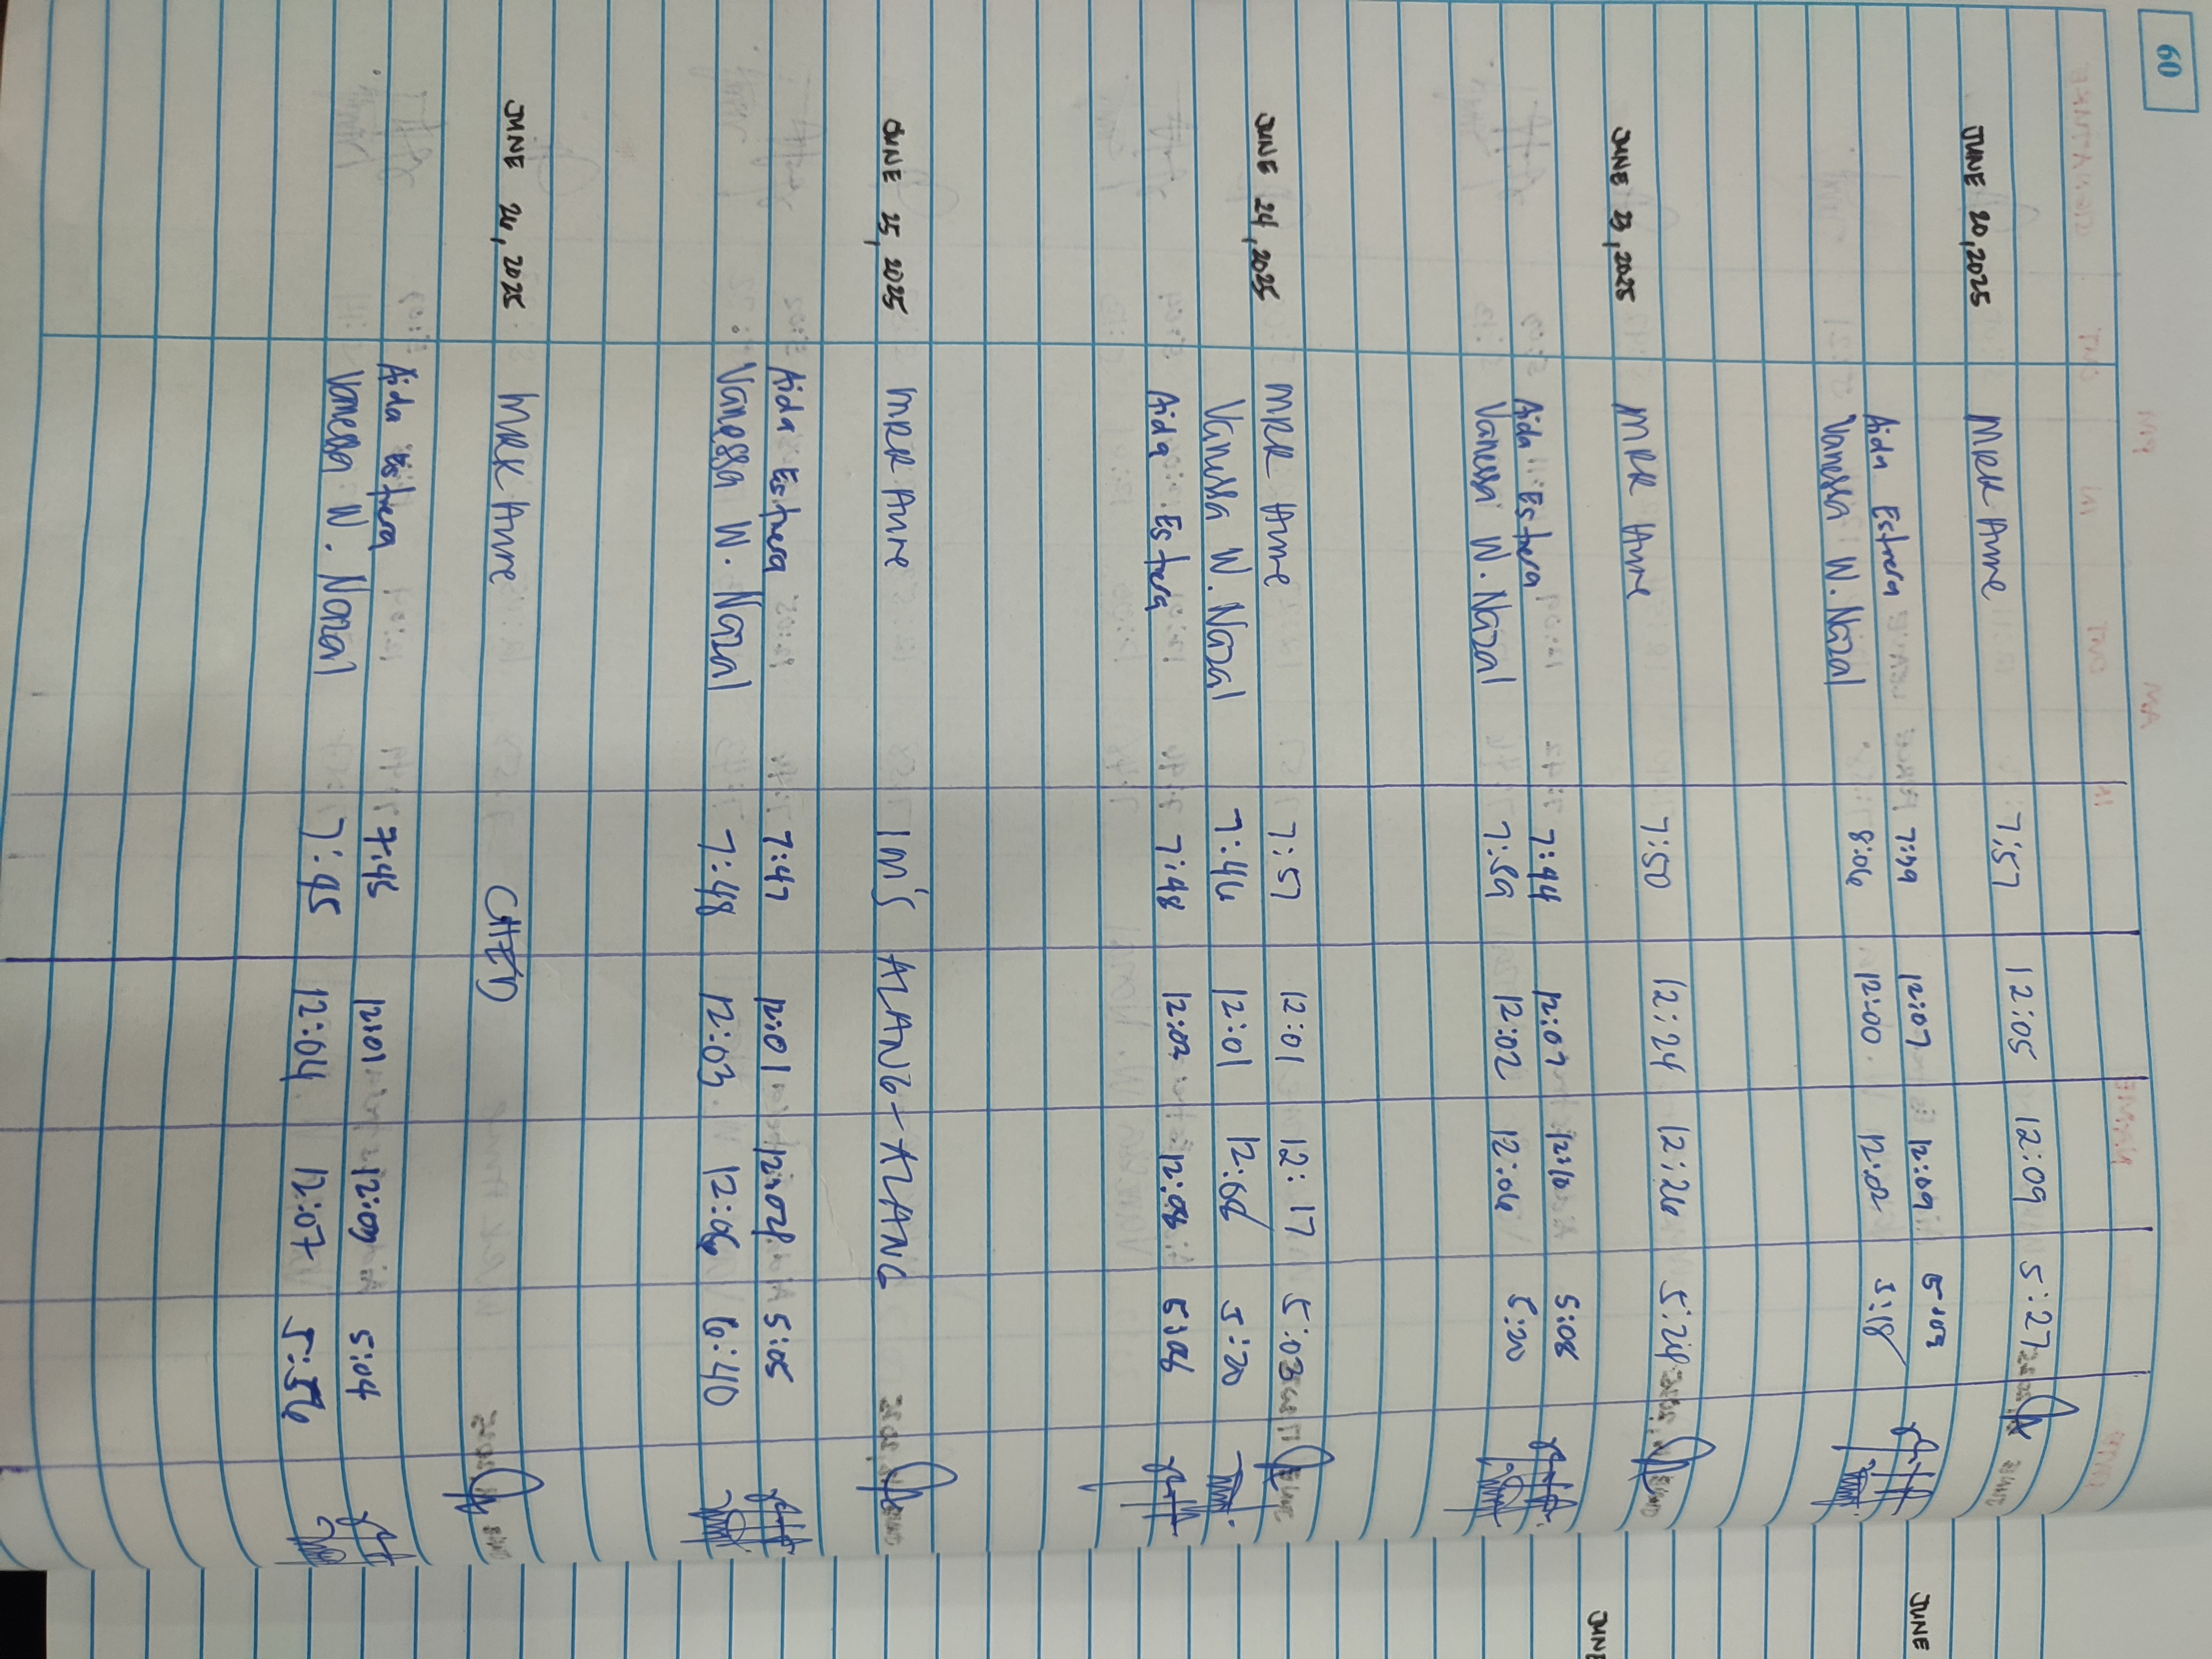 60
JUNE 20, 2025 MRR Anne 7:57 12:05 12:09 5:27
Aida Estrera 7:49 12:07 12:09 5:09
Vanessa W. Nazal 8:06 12:00 12:02 5:18
JUNE 23, 2025 MRR Anne 7:50 12:24 12:26 5:24
Aida Estrera 7:44 12:07 12:10 5:08
Vanessa W. Nazal 7:59 12:02 12:06 5:20
JUNE 24, 2025 MRR Anne 7:57 12:01 12:17 5:03
Vanessa W. Nazal 7:46 12:01 5:20
Aida Estrera 7:48 12:02 12:08 5:06
JUNE 25, 2025 MRR Anne ALANG-ALANG
Aida Estrera 7:47 12:01 12:04 5:05
Vanessa W. Nazal 7:48 12:03 12:06 6:40
JUNE 26, 2025 MRR Anne CHED
Aida Estrera 7:45 12:01 12:09 5:04
Vanessa W. Nazal 7:45 12:04 12:07 5:56
JUNE
JUNE